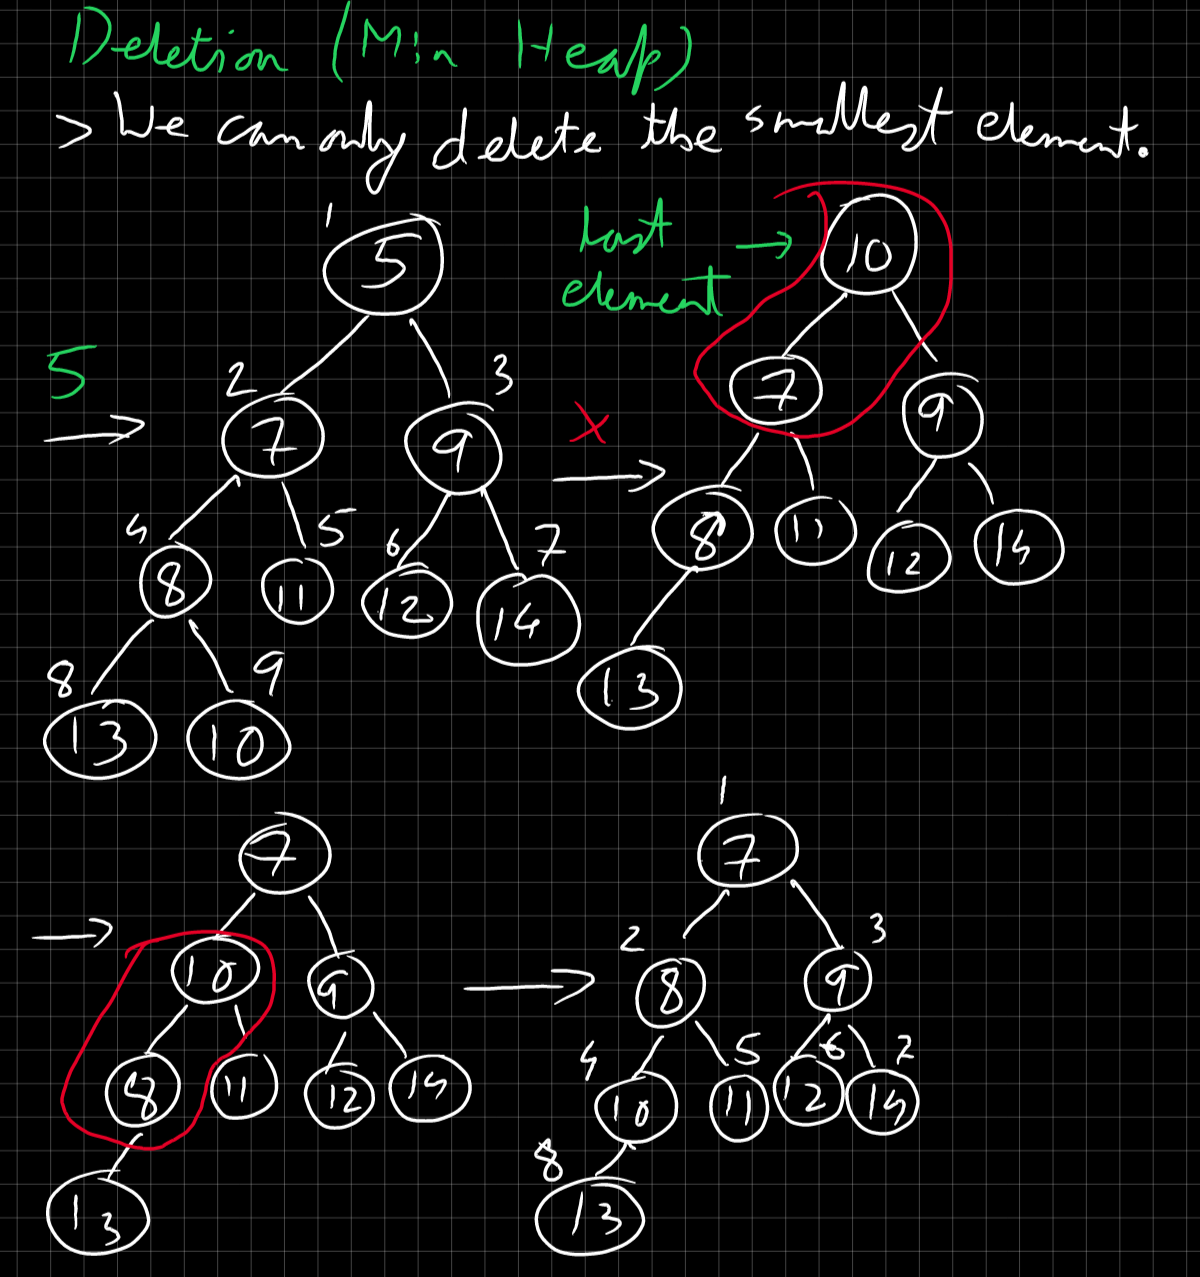 Deletion (Min Heap)
> We can only delete the smallest element.
1
5
5
2
7
3
9
4
8
5
11
6
12
7
14
8
13
9
10
Last
element
→
10
X
7
9
8
11
12
14
13
7
10
9
8
11
12
14
13
1
7
2
8
3
9
4
10
5
11
6
12
7
14
8
13